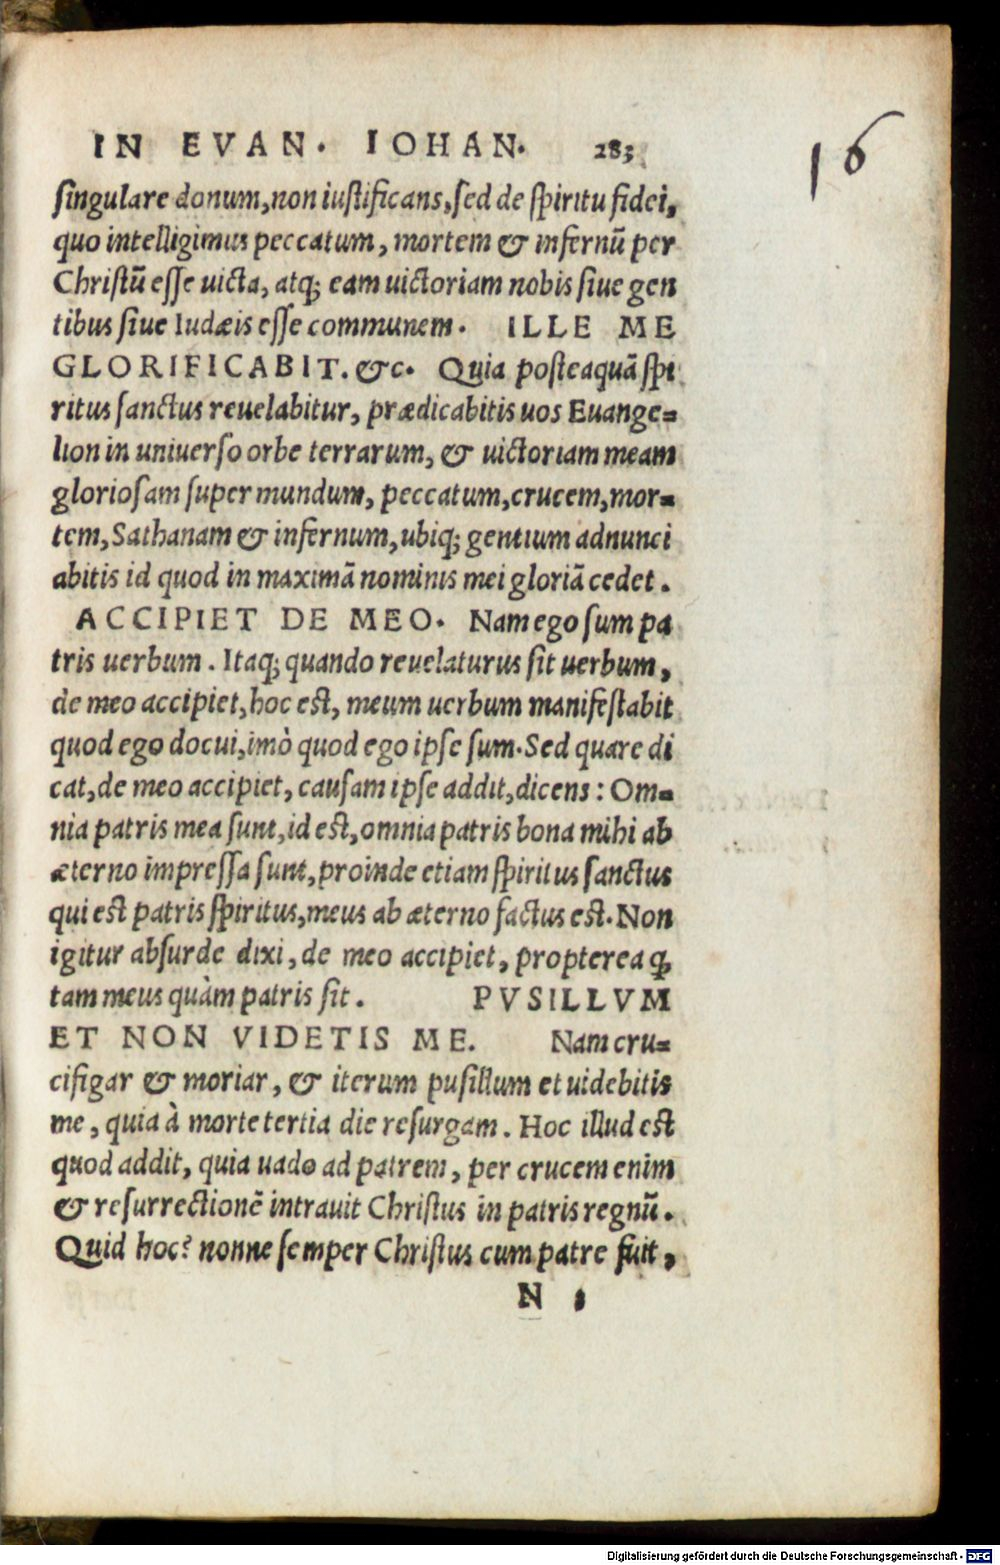 IN EVAN. IOHAN. 283
16
singulare donum, non iustificans, sed de spiritu fidei,
quo intelligimus peccatum, mortem & infernū per
Christū esse uicta, atq; eam uictoriam nobis siue gen
tibus siue Iudæis esse communem. ILLE ME
GLORIFICABIT. &c. Quia posteaquā spi
ritus sanctus reuelabitur, prædicabitis uos Euange=
lion in uniuerso orbe terrarum, & uictoriam meam
gloriosam super mundum, peccatum, crucem, mor=
tem, Sathanam & infernum, ubiq; gentium adnunci
abitis id quod in maximā nominis mei gloriā cedet.
ACCIPIET DE MEO. Nam ego sum pa
tris uerbum. Itaq; quando reuelaturus sit uerbum,
de meo accipiet, hoc est, meum uerbum manifestabit
quod ego docui, imò quod ego ipse sum. Sed quare di
cat, de meo accipiet, causam ipse addit, dicens: Om=
nia patris mea sunt, id est, omnia patris bona mihi ab
æterno impressa sunt, proinde etiam spiritus sanctus
qui est patris spiritus, meus ab æterno factus est. Non
igitur absurde dixi, de meo accipiet, propterea ꝙ
tam meus quàm patris sit. PVSILLVM
ET NON VIDETIS ME. Nam cru=
cifigar & moriar, & iterum pusillum et uidebitis
me, quia à morte tertia die resurgam. Hoc illud est
quod addit, quia uado ad patrem, per crucem enim
& resurrectionē intrauit Christus in patris regnū.
Quid hoc? nonne semper Christus cum patre fuit,
N
Digitalisierung gefördert durch die Deutsche Forschungsgemeinschaft - DFG